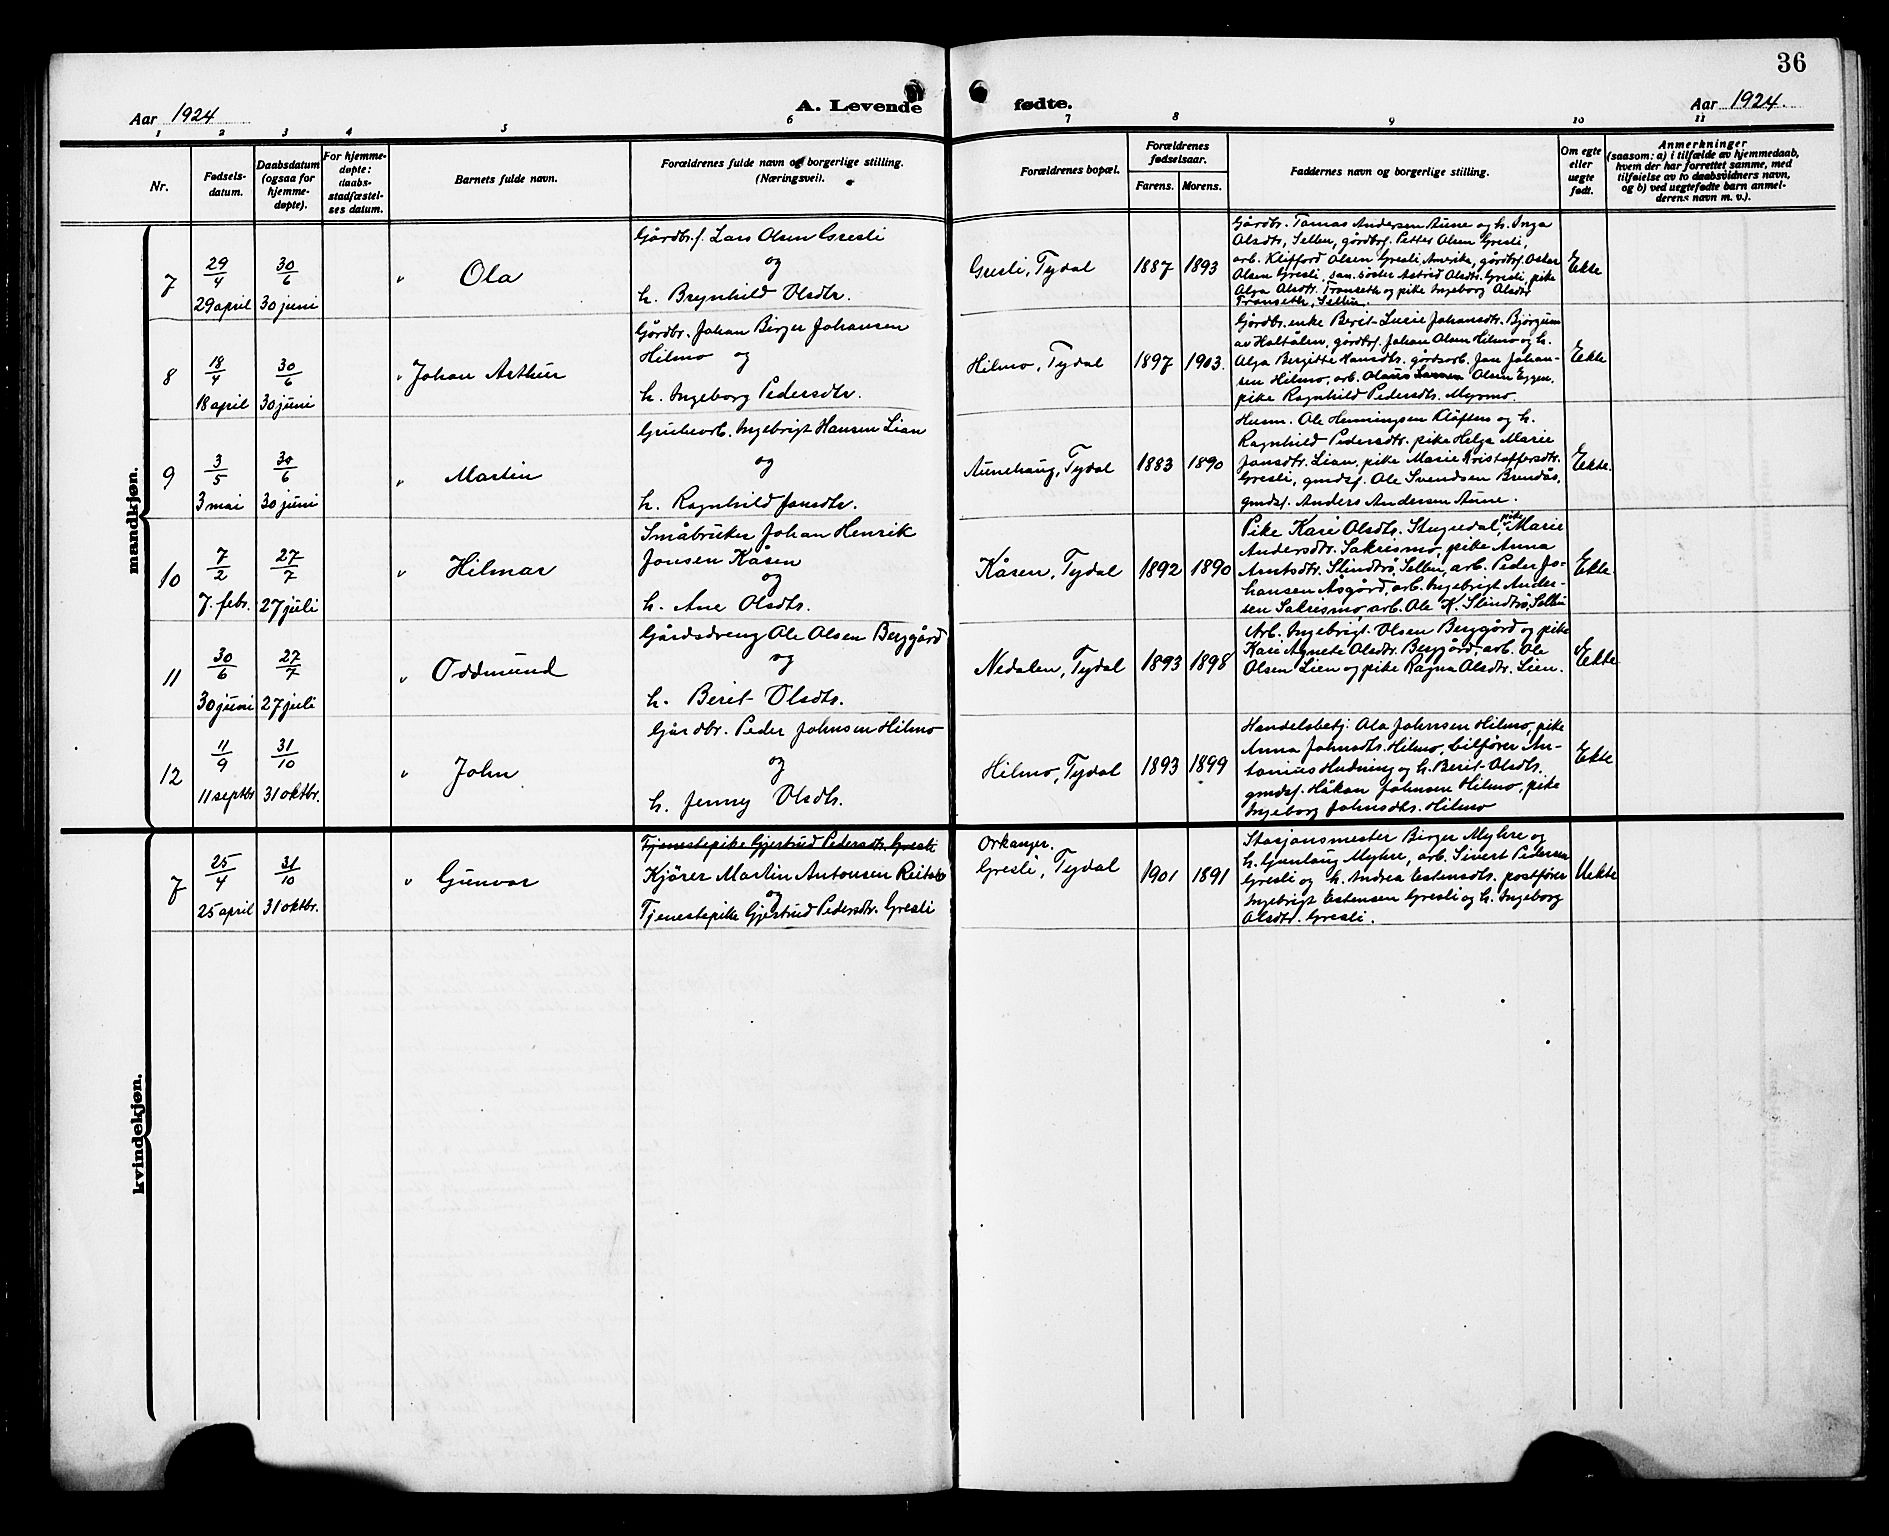 36
Aar 1924
A. Levende fødte.
Aar 1924.
1 2 3 4 5 6 7 8 9 10 11
Nr.
Fødsels-
datum.
Daabsdatum
(ogsaa for
hjemme-
døpte).
For hjemme-
døpte:
daabs-
stadfæstel-
ses datum.
Barnets fulde navn.
Forældrenes fulde navn og borgerlige stilling.
(Næringsvei).
Forældrenes bopæl.
Forældrenes
fødselsaar.
Farens. Morens.
Faddernes navn og borgerlige stilling.
Om egte
eller
uegte
født.
Anmerkninger
(saasom: a) i tilfælde av hjemmedaab,
hvem der har forrettet samme, med
tilføielse av to daabsvidners navn,
og b) ved uegtefødte barn anmel-
derens navn m. v.).
mandkjøn.
7
29/4
29 april
30/6
30 juni
" Ola
Gårdbr.f. Lars Olsen Gresli
og
h. Brynhild Olsdtr.
Gresli, Tydal
1887 1893
Gårdbr. Tomas Andersen Aune og h. Inga
Olsdtr, Selbu, gårdbrf. Petter Olsen Gresli,
arb. Klifford Olsen Gresli, Amerika, gårdbrf. Oskar
Olsen Gresli, søster Astrid Olsdtr. Gresli, pike
Alga Olsdtr. Franseth og pike Ingeborg Olsdtr
Franseth, Selbu.
Ekte
8
18/4
18 april
30/6
30 juni
" Johan Arthur
Gårdbr. Johan Birger Johansen
Hilmo og
h. Ingeborg Pedersdtr.
Hilmo, Tydal
1897 1903.
Gårdbr. enke Berit-Lucie Johansdtr. Bjørgum
av Haltålen, gårdbrf. Johan Olsen Hilmo og h.
Alga Bergitte Hansdtr. gårdsarb. Jon Johan-
sen Hilmo, arb. Olaus Olsen Eggen,
pike Ragnhild Pedersdtr. Myrmo.
Ekte
9
3/5
3 mai
30/6
30 juni
" Martin
Grubearb. Ingebrigt Hansen Lian
og
h. Ragnhild Jonsdtr.
Aunehaug, Tydal
1883 1890
Husm. Ole Henningsen Kløften og h.
Ragnhild Pedersdtr. pike Helga Marie
Jonsdtr. Lian, pike Marie Kristoffersdtr.
Gresli, gmdsf. Ole Svendsen Brendås,
gmdsf. Anders Andersen Aune.
Ekte.
10
7/2
7. febr.
27/7
27 juli
" Hilmar
Småbruker Johan Henrik
Jonsen Kåsen
og
h. Ane Olsdtr.
Kåsen, Tydal
1892 1890
Pike Kari Olsdtr. Stugudal, pike Marie
Andersdtr. Sakrismo, pike Anna
Arntsdtr. Slindtrø, Selbu, arb. Peder Jo-
hansen Åsgård, arb. Ingebrigt Ander-
sen Sakrismo, arb. Ole K. Slindtrø, Selbu
Ekte.
11
30/6
30 juni
27/7
27 juli
" Oddmund
Gårdsdreng Ole Olsen Berggård
og
h. Berit Olsdtr.
Nedalen, Tydal
1893 1898
Arb. Ingebrigt Olsen Berggård og pike
Kari Agnete Olsdtr. Berggård, arb. Ole
Olsen Lien og pike Ragna Olsdtr. Lien.
Ekte
12
11/9
11 septbr
31/10
31 oktbr.
" John
Gårdbr. Peder Johnsen Hilmo
og
h. Jenny Olsdtr.
Hilmo, Tydal
1893 1899
Handelsbetj. Ola Johnsen Hilmo, pike
Anna Johnsdtr. Hilmo, bilfører An-
tonius Hudning og h. Berit Olsdtr.
gmdsf. Håkon Johnsen Hilmo, pike
Ingeborg Johnsdtr. Hilmo
Ekte
kvindekjøn.
7
25/4
25 april
31/10
31 oktbr.
" Gunvor
Tjenestepike Gjertrud Pedersdtr. Gresli
Kjører Martin Antonsen Reitslo
og
Tjenestepike Gjertrud Pedersdtr. Gresli
Orkanger.
Gresli, Tydal
1901 1891
Stasjonsmester Birger Myhre og
h. Gunlaug Myhre, arb. Sivert Pedersen
Gresli og h. Andrea Estensdtr. postfører
Ingebrigt Estensen Gresli og h. Ingeborg
Olsdtr. Gresli.
Uekte